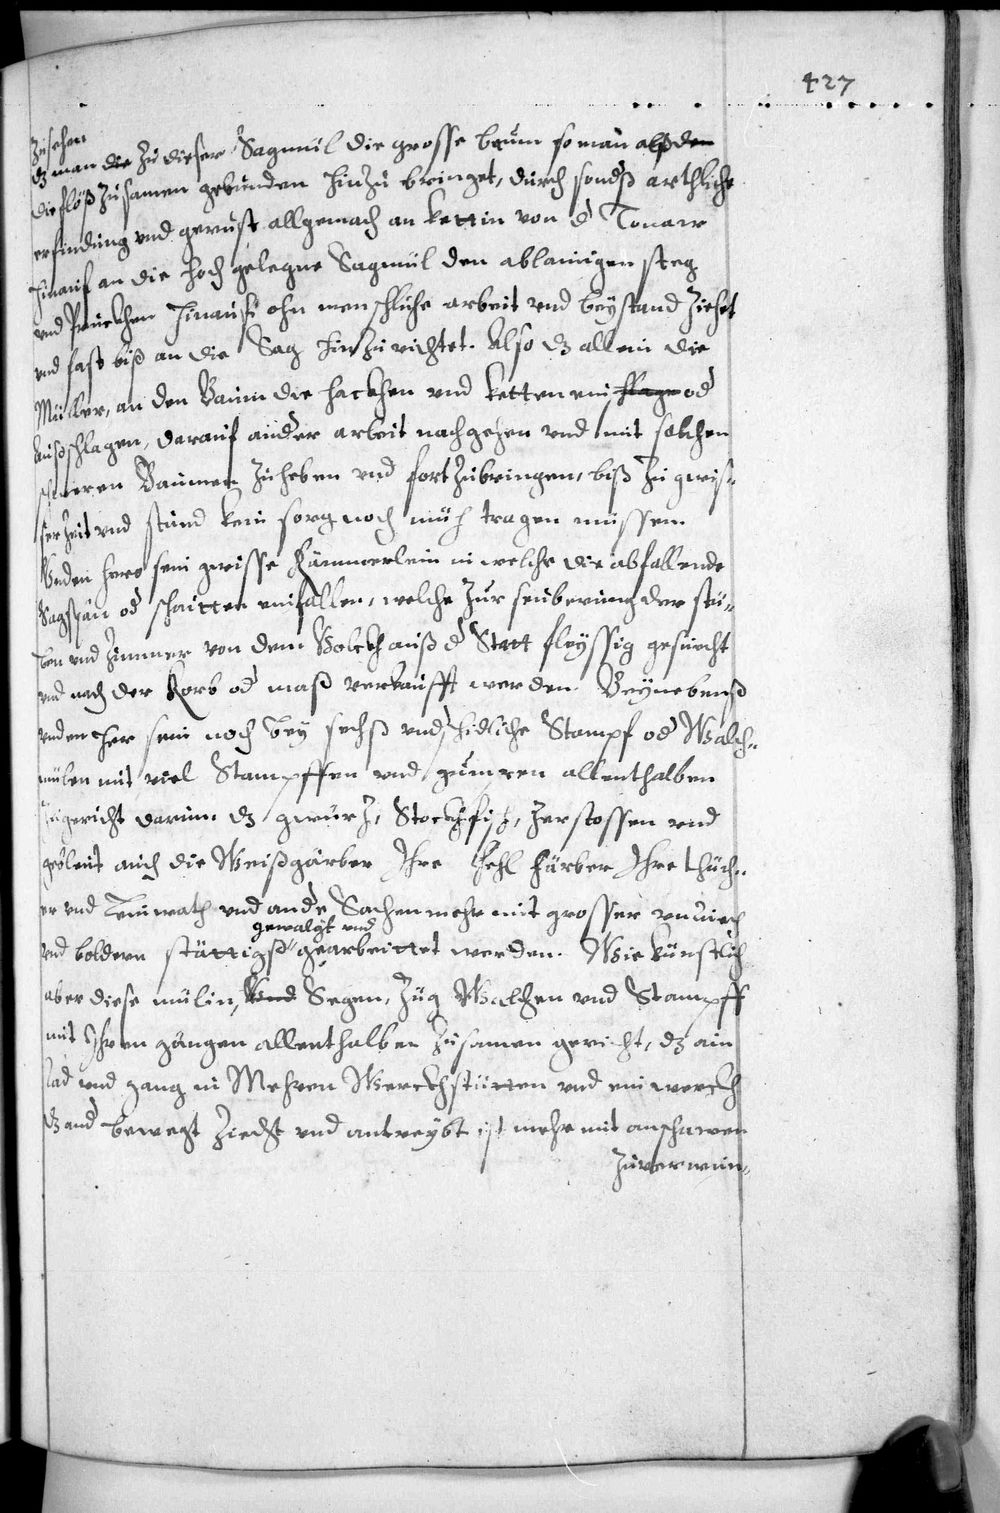 427
Zusehen
dz man die zu dieser Sagmül die grosse baum so man alß den
die flöß zusamen gebunden hinzu bringet, durch sondß arthliche
erfindung vnd gerust allgemach an kettin von d Tonaw
hinauf an die hoch gelegne Sagmül den ablainigen steg
vnd Pruckhen hinauß ohn menschliche arbeit vnd beystand ziehet
vnd fast biß an die Sag hinzu richtet. Also dz allein die
Müller, an den Baum die hackhen vnd ketten ein od
außschlagen, darauf ander arbeit nachgehen vnd mit solchen
schweren Baumen zuheben vnd fort zubringen, biß zu gewis-
ser zeit vnd stund kein sorg noch müh tragen müssen.
Vnden hero sein gwisse Kämmerlein in welche die abfallende
Sagspän od schaitten einfallen, welche zur seuberung der stu-
ben vnd Zimmer von dem Volckh auß d Statt fleyssig gesucht
vnd nach der Korb od maß verkaufft werden. Beynebenß
vnden her sein noch bey sechß vndschidliche Stampf od Walch-
mülen mit viel Stampffen vnd gumpen allenthalben
zugericht darinn dz gwürz, Stockfisch, zerstossen vnd
geölent auch die Weißgärber Ihre Fehl Färber Ihre thüch-
er vnd Leinwath vnd andre Sachen mehr mit grosser
gewalgt vnd
vnd boldern stättigß gearbeittet werden. Wie künstlich
aber diese mülin, Vnd Segen, Züg Walchen vnd Stampff
mit Ihren gängen allenthalben zusamen gericht, dz ain
Rad vnd gang in Mehren Werckhstütten vnd ein werckh
dz and bewegt ziecht vnd antreybt ist mehr mit anschawen
zuverwun-